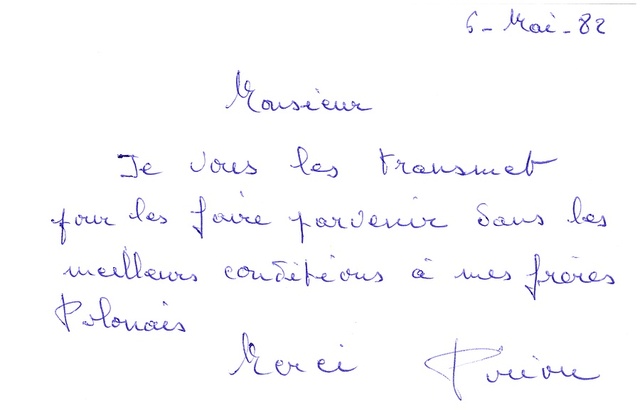 6 - Mai - 82
Monsieur
Je vous les transmet
pour les faire parvenir dans les
meilleurs conditions à mes frères
Polonais
Merci